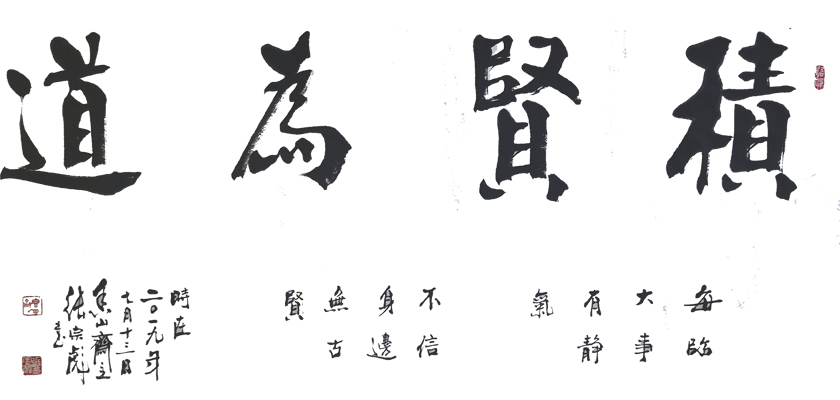 積賢為道
每臨
大事
有静
氣
不信
身邊
無古
賢
時在
二〇一九年
七月十三日
張宗彪